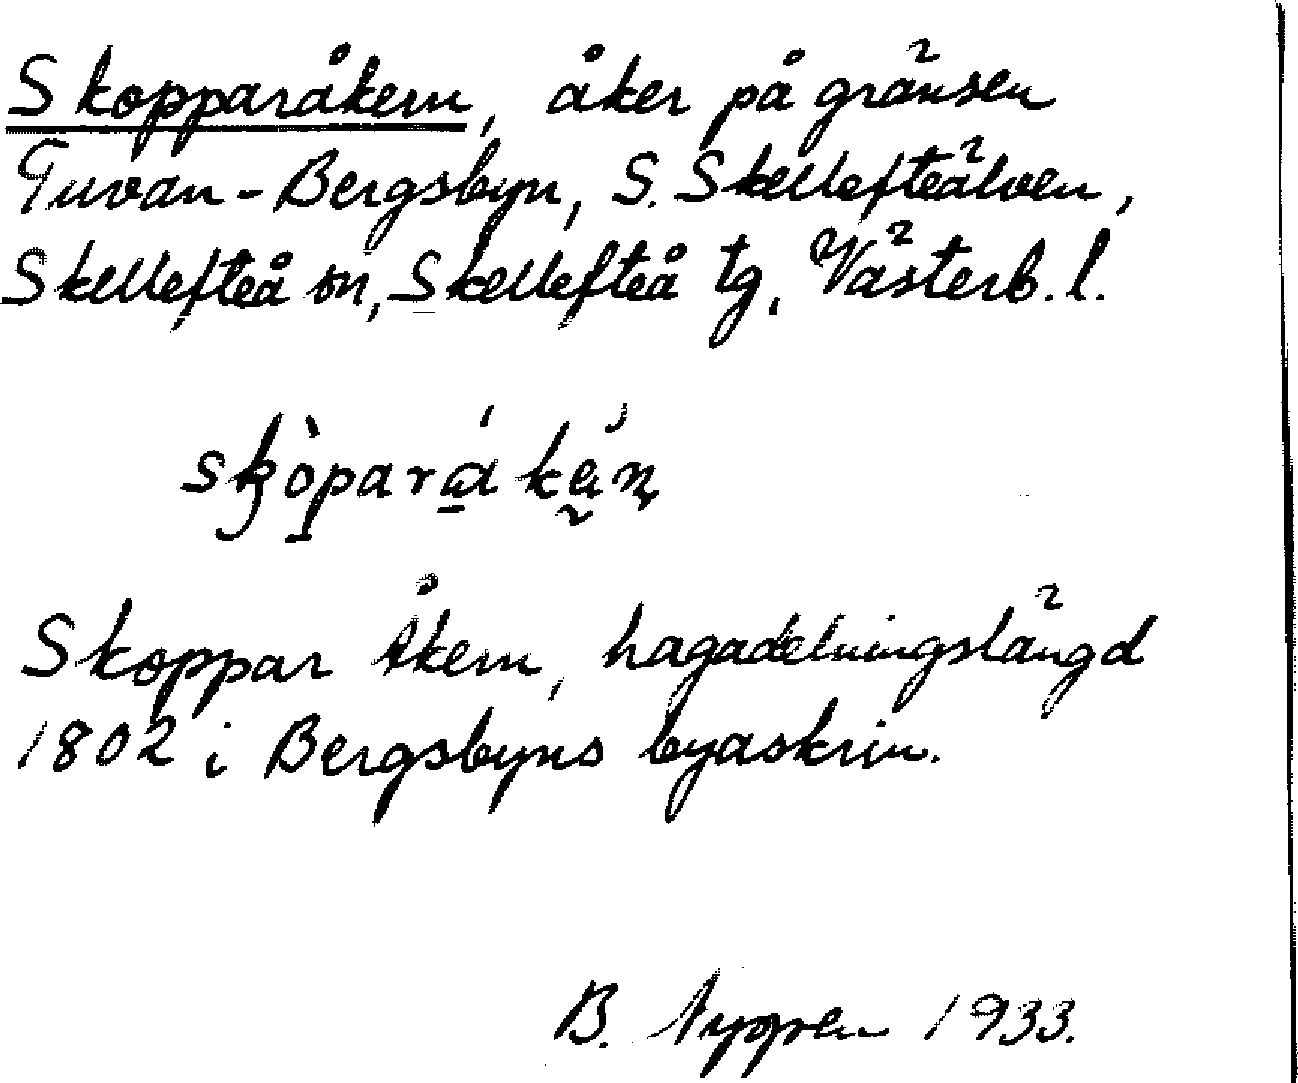 Skopparåkern, åker på gränsen
Tuvan-Bergsbyn, S. Skellefteälven,
Skellefteå sn, Skellefteå tg, Västerb. l.
Skoppar Åkern, hagadelningslängd
1802 i Bergsbyns byaskrin.
B. 1933.